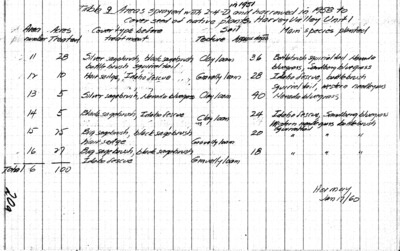 in 1951
Table 9 Areas sprayed with 2-4-D and harrowed in 1958 to
cover seed of native plants Harney Valley Unit 1
Area number Acres Treated Cover type before treatment Soil Texture Main species planted
11 28 Silver sagebrush, black sagebrush Clay loam 36 Bottlebrush squirreltail Nevada
bottlebrush squirreltail bluegrass, Sandberg bluegrass
12 10 Hair sedge, Idaho fescue Gravelly loam 28 Idaho fescue, bottlebrush
squirreltail, western needlegrass
13 5 Silver sagebrush, Nevada bluegrass Clay loam 40 Nevada bluegrass
14 5 Black sagebrush, Idaho fescue Clay loam 24 Idaho fescue, Sandberg bluegrass
Western needlegrass bottlebrush
squirreltail
15 25 Big sagebrush, black sagebrush 20 " " "
hair sedge Gravelly loam
16 27 Big sagebrush, black sagebrush 18 " " "
Idaho fescue Gravelly loam
Total 6 100
Hormay
Jan 17/60
20a